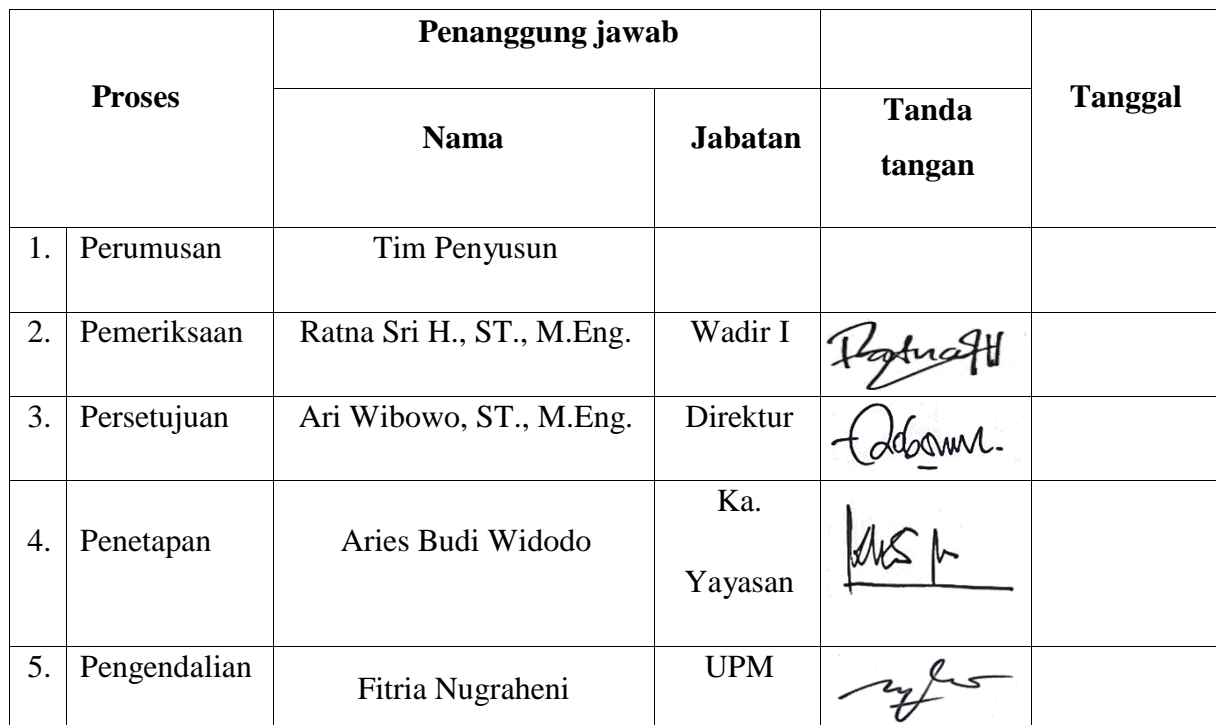 Proses
Penanggung jawab
Tanggal
Nama
Jabatan
Tanda
tangan
1. Perumusan Tim Penyusun
2. Pemeriksaan Ratna Sri H., ST., M.Eng. Wadir I
3. Persetujuan Ari Wibowo, ST., M.Eng. Direktur
4. Penetapan Aries Budi Widodo Ka.
Yayasan
5. Pengendalian Fitria Nugraheni UPM